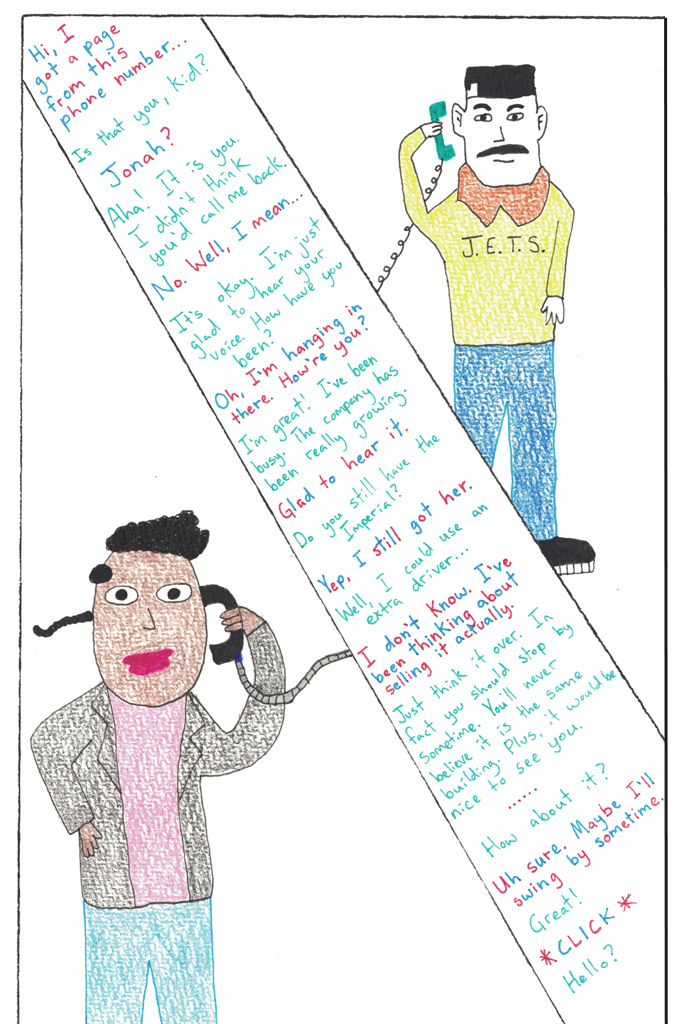 Hi, I
got a page
from this
phone number...
Is that you, kid?
Jonah?
Aha! It is you.
I didn't think
you'd call me back.
No. Well, I mean...
It's okay. I'm just
glad to hear your
voice. How have you
been?
Oh, I'm hanging in
there. How're you?
I'm great! I've been
busy. The company has
been really growing.
Glad to hear it.
Do you still have the
Imperial?
Yep, I still got her.
Well, I could use an
extra driver...
I don't know. I've
been thinking about
selling it actually.
Just think it over. In
fact you should stop by
sometime. You'll never
believe it is the same
building. Plus, it would be
nice to see you.
.......
How about it?
Uh sure. Maybe I'll
swing by sometime.
Great!
*CLICK*
Hello?
J.E.T.S.